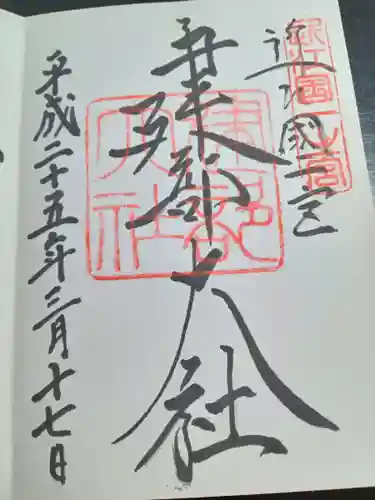 近江國一宮
建部大社
平成二十五年三月十七日
建部
大社